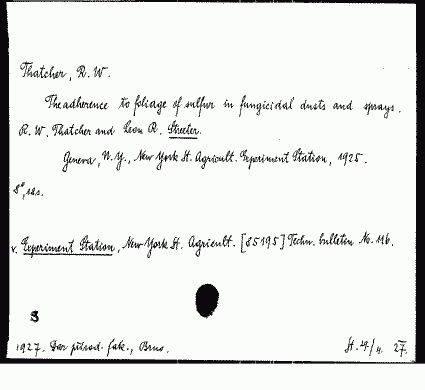 Thatcher, R. W.
The adherence to foliage of sulfur in fungicidal dusts and sprays.
R. W. Thatcher and Leon R. Streeter.
Geneva, N. Y., New York St. Agricult. Experiment Station, 1925.
8°, 18 s.
v. Experiment Station, New York St. Agricult. [85195] Techn. bulletin No. 116.
S
1927. Dar přírod. fak., Brno. St. 29/4. 27.